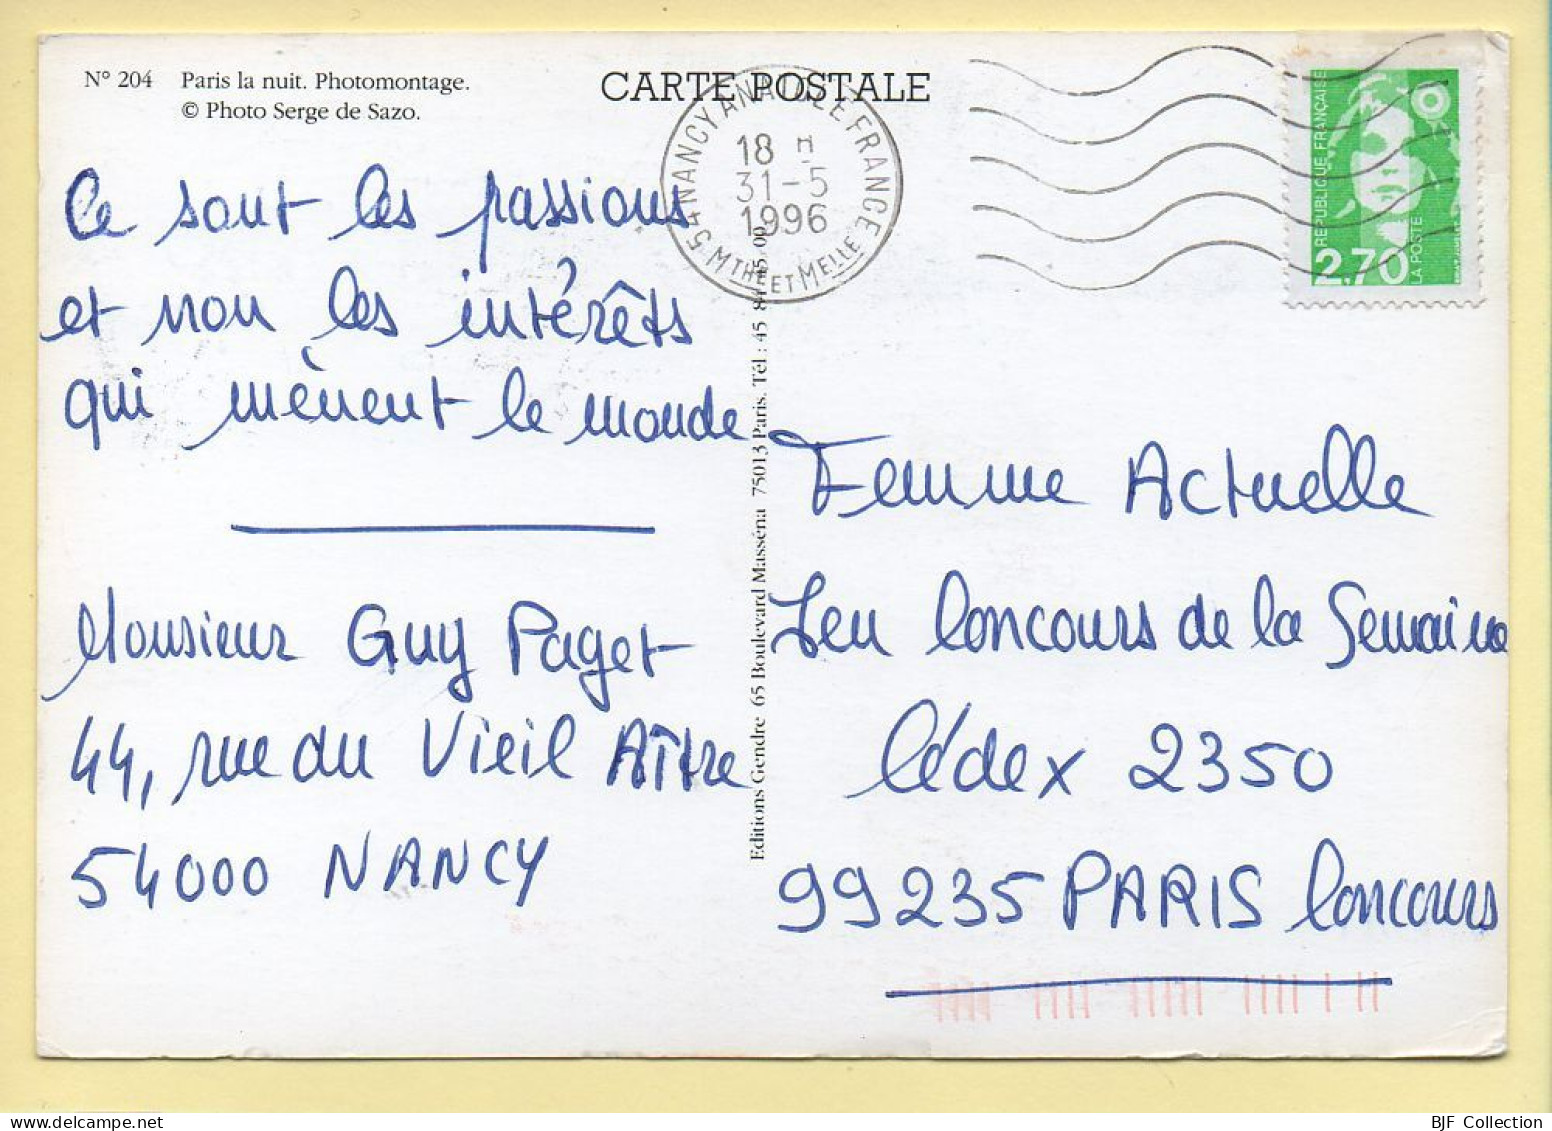 N° 204 Paris la nuit. Photomontage.
© Photo Serge de Sazo.
CARTE POSTALE
54 NANCY ANATOLE FRANCE
18 H
31-5
1996
MTHE ET MELLE
REPUBLIQUE FRANÇAISE
LA POSTE
2,70
Ce sont les passions
et non les intérêts
qui mènent le monde
Monsieur Guy Paget
44, rue du Vieil Aître
54000 NANCY
Editions Gendre 65 Boulevard Masséna 75013 Paris. Tél : 45 84 45 00
Femme Actuelle
Jeu Concours de la Semaine
Cédex 2350
99235 PARIS Concours
BJF Collection